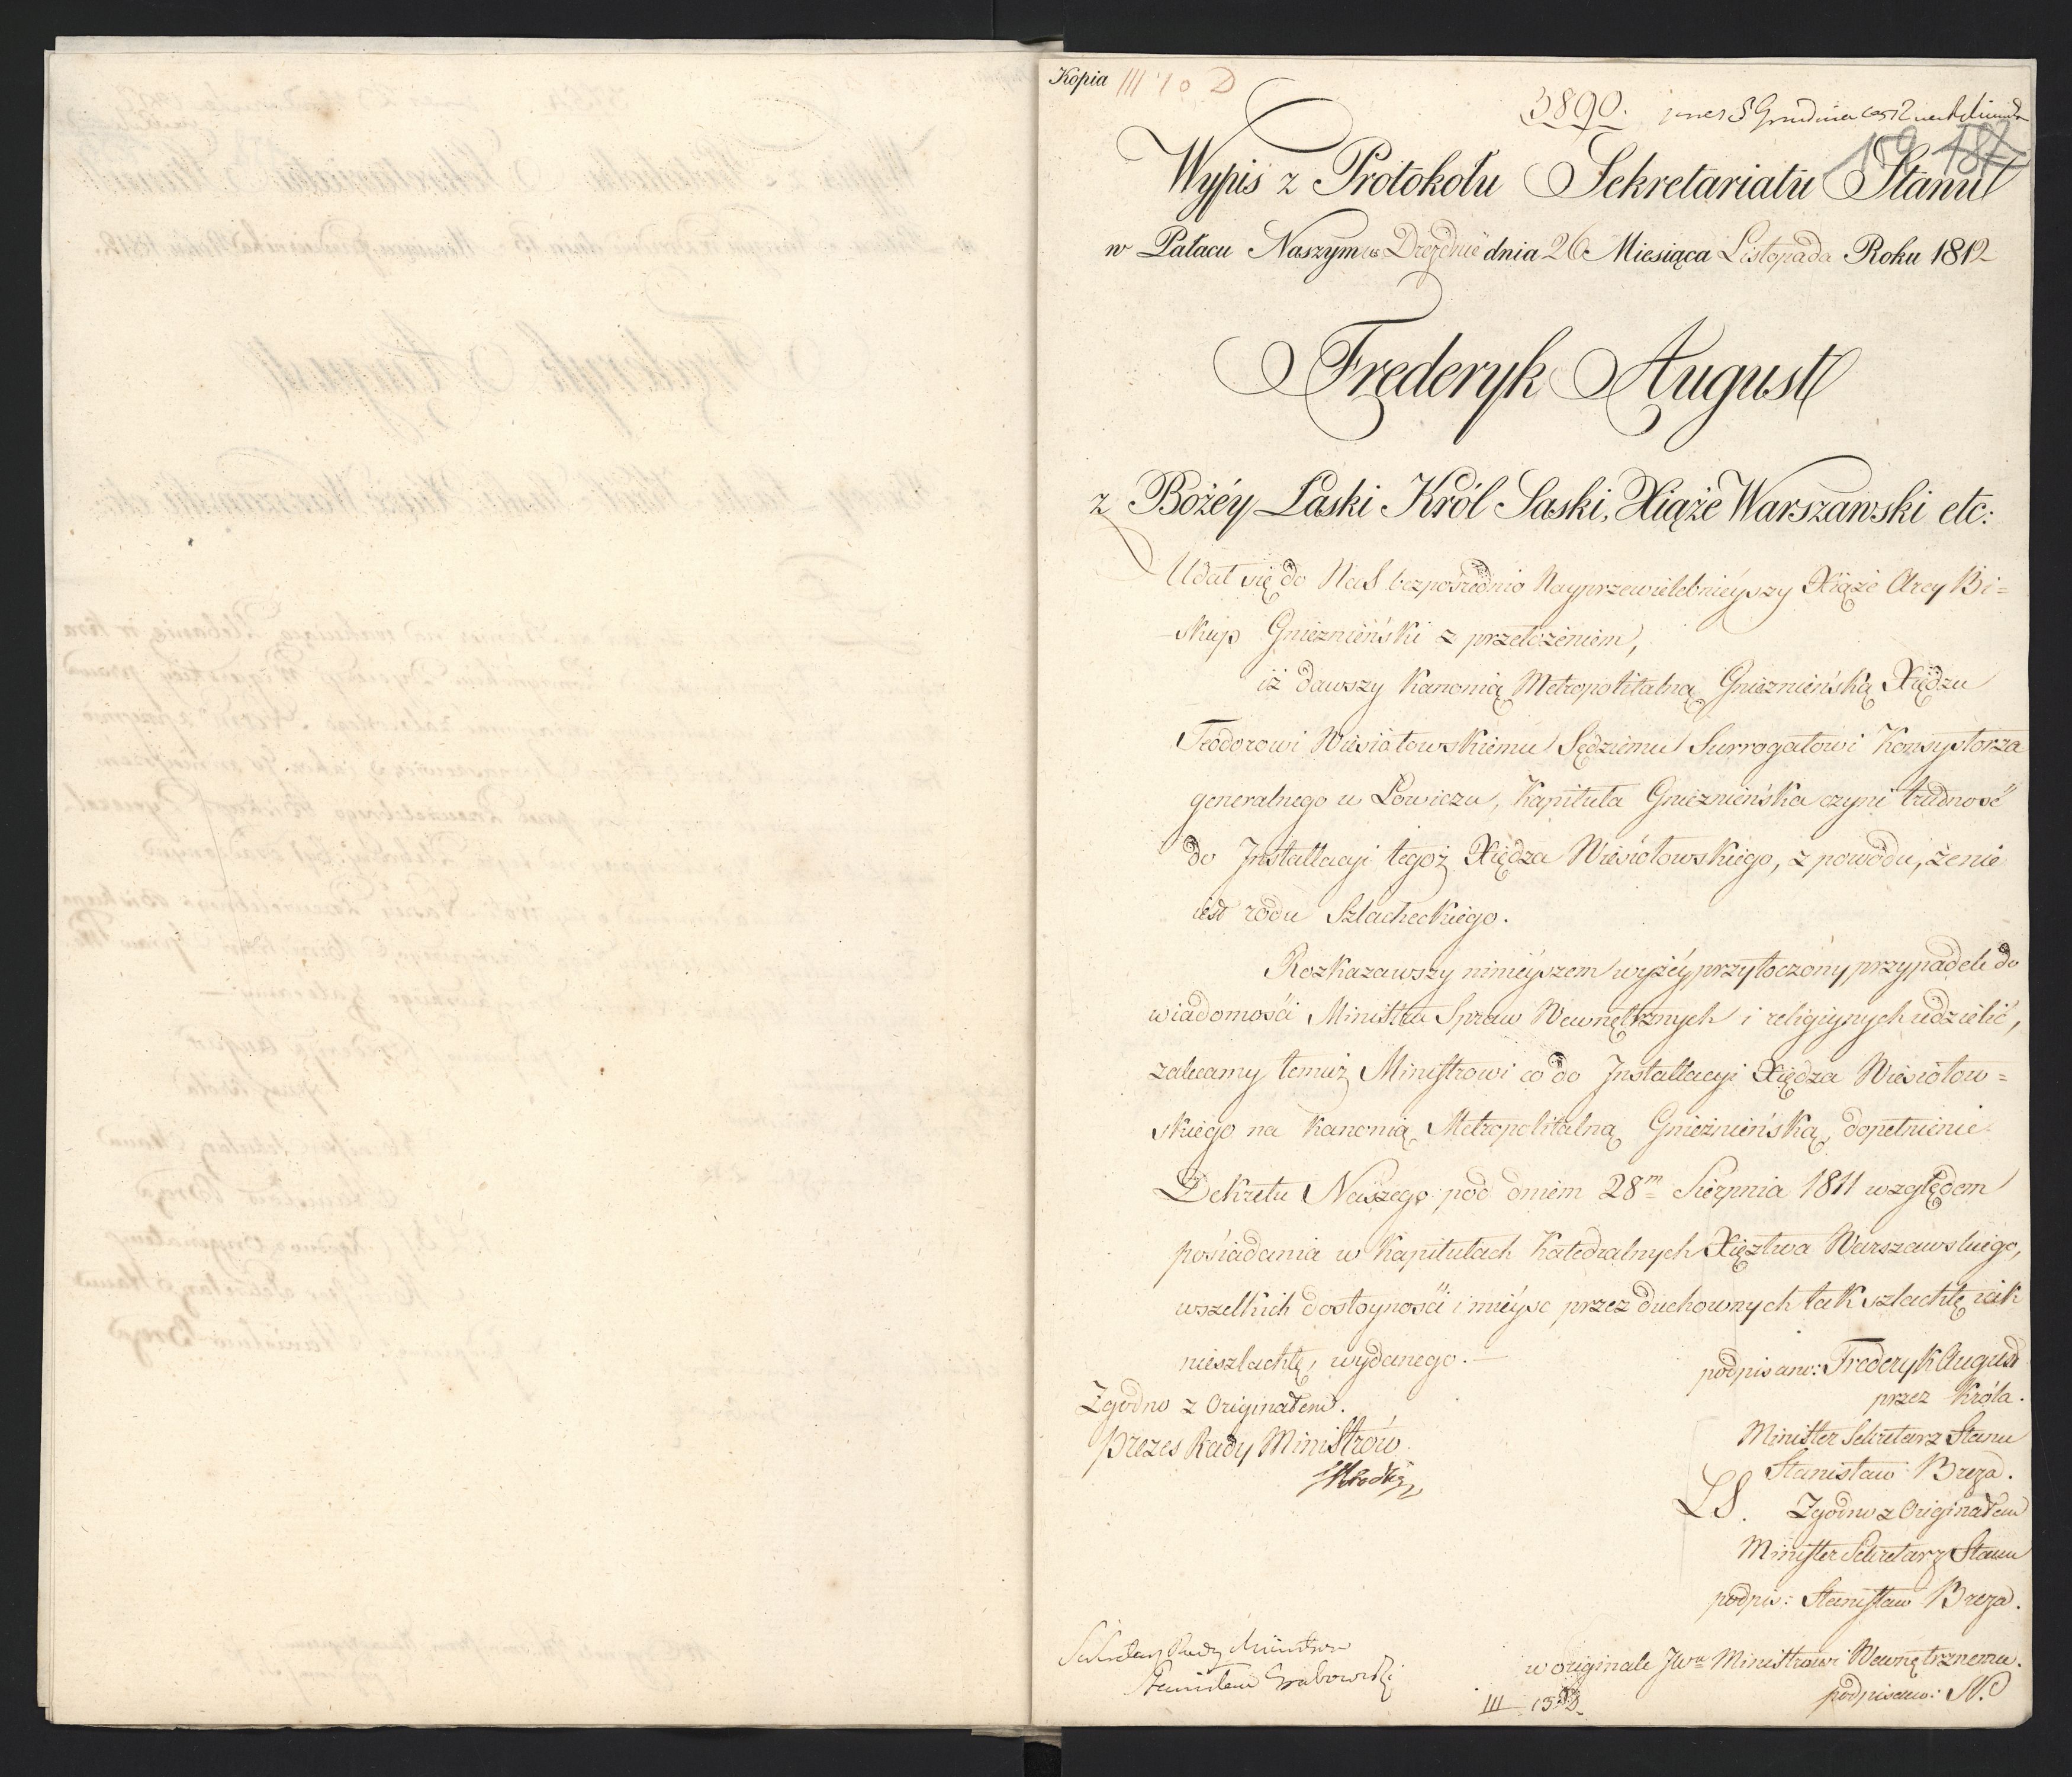 Kopia III 10 D
3890.
159 187
Wypis z Protokołu Sekretariatu Stanu
w Pałacu Naszym w Dreźdnie dnia 26 Miesiąca Listopada Roku 1812
Frederyk August
z Bożéy Łaski Król Saski, Xiąże Warszawski etc:
Udał się do Nas bezpośrednio Nayprzewielebnieyszy Xiąże Arcy Bi=
skup Gnieznieński z przełożeniem,
iż dawszy Kanonią Metropolitalną Gnieznieńską Xiędzu
Teodorowi Wiesiołowskiemu Sędziemu Surrogatowi Konsystorza
generalnego w Łowiczu, Kapituła Gnieznieńska czyni trudność
do Installacyi tegoż Xiędza Wiesiołowskiego, z powodu, że nie
iest rodu Szlacheckiego.
Rozkazawszy ninieyszem wyżéy przytoczony przypadek do
wiadomości Ministra Spraw Wewnętrznych i religiynych udzielić,
zalecamy temuż Ministrowi co do Installacyi Xiędza Wiesiołow=
skiego na Kanonią Metropolitalną Gnieźnieńską, dopełnienie
Dekretu Naszego pod dniem 28m Sierpnia 1811 względem
posiadania w Kapitułach Katedralnych Xięztwa Warszawskiego,
wszelkich dostoyności i mieysc przez duchownych tak szlachtę iak
nieszlachtę, wydanego. —
podpisano: Frederyk August
przez Króla.
Zgodno z Originałem.
Prezes Rady Ministrów
Minister Sekretarz Stanu
Stanisław Breza.
LS. Zgodno z Originałem
Minister Sekretarz Stanu
podpis: Stanisław Breza.
Sekretarz Rady Ministrów
Stanisław Grabowski
w originale JWu Ministrowi Wewnętrznemu.
podpisano:
III